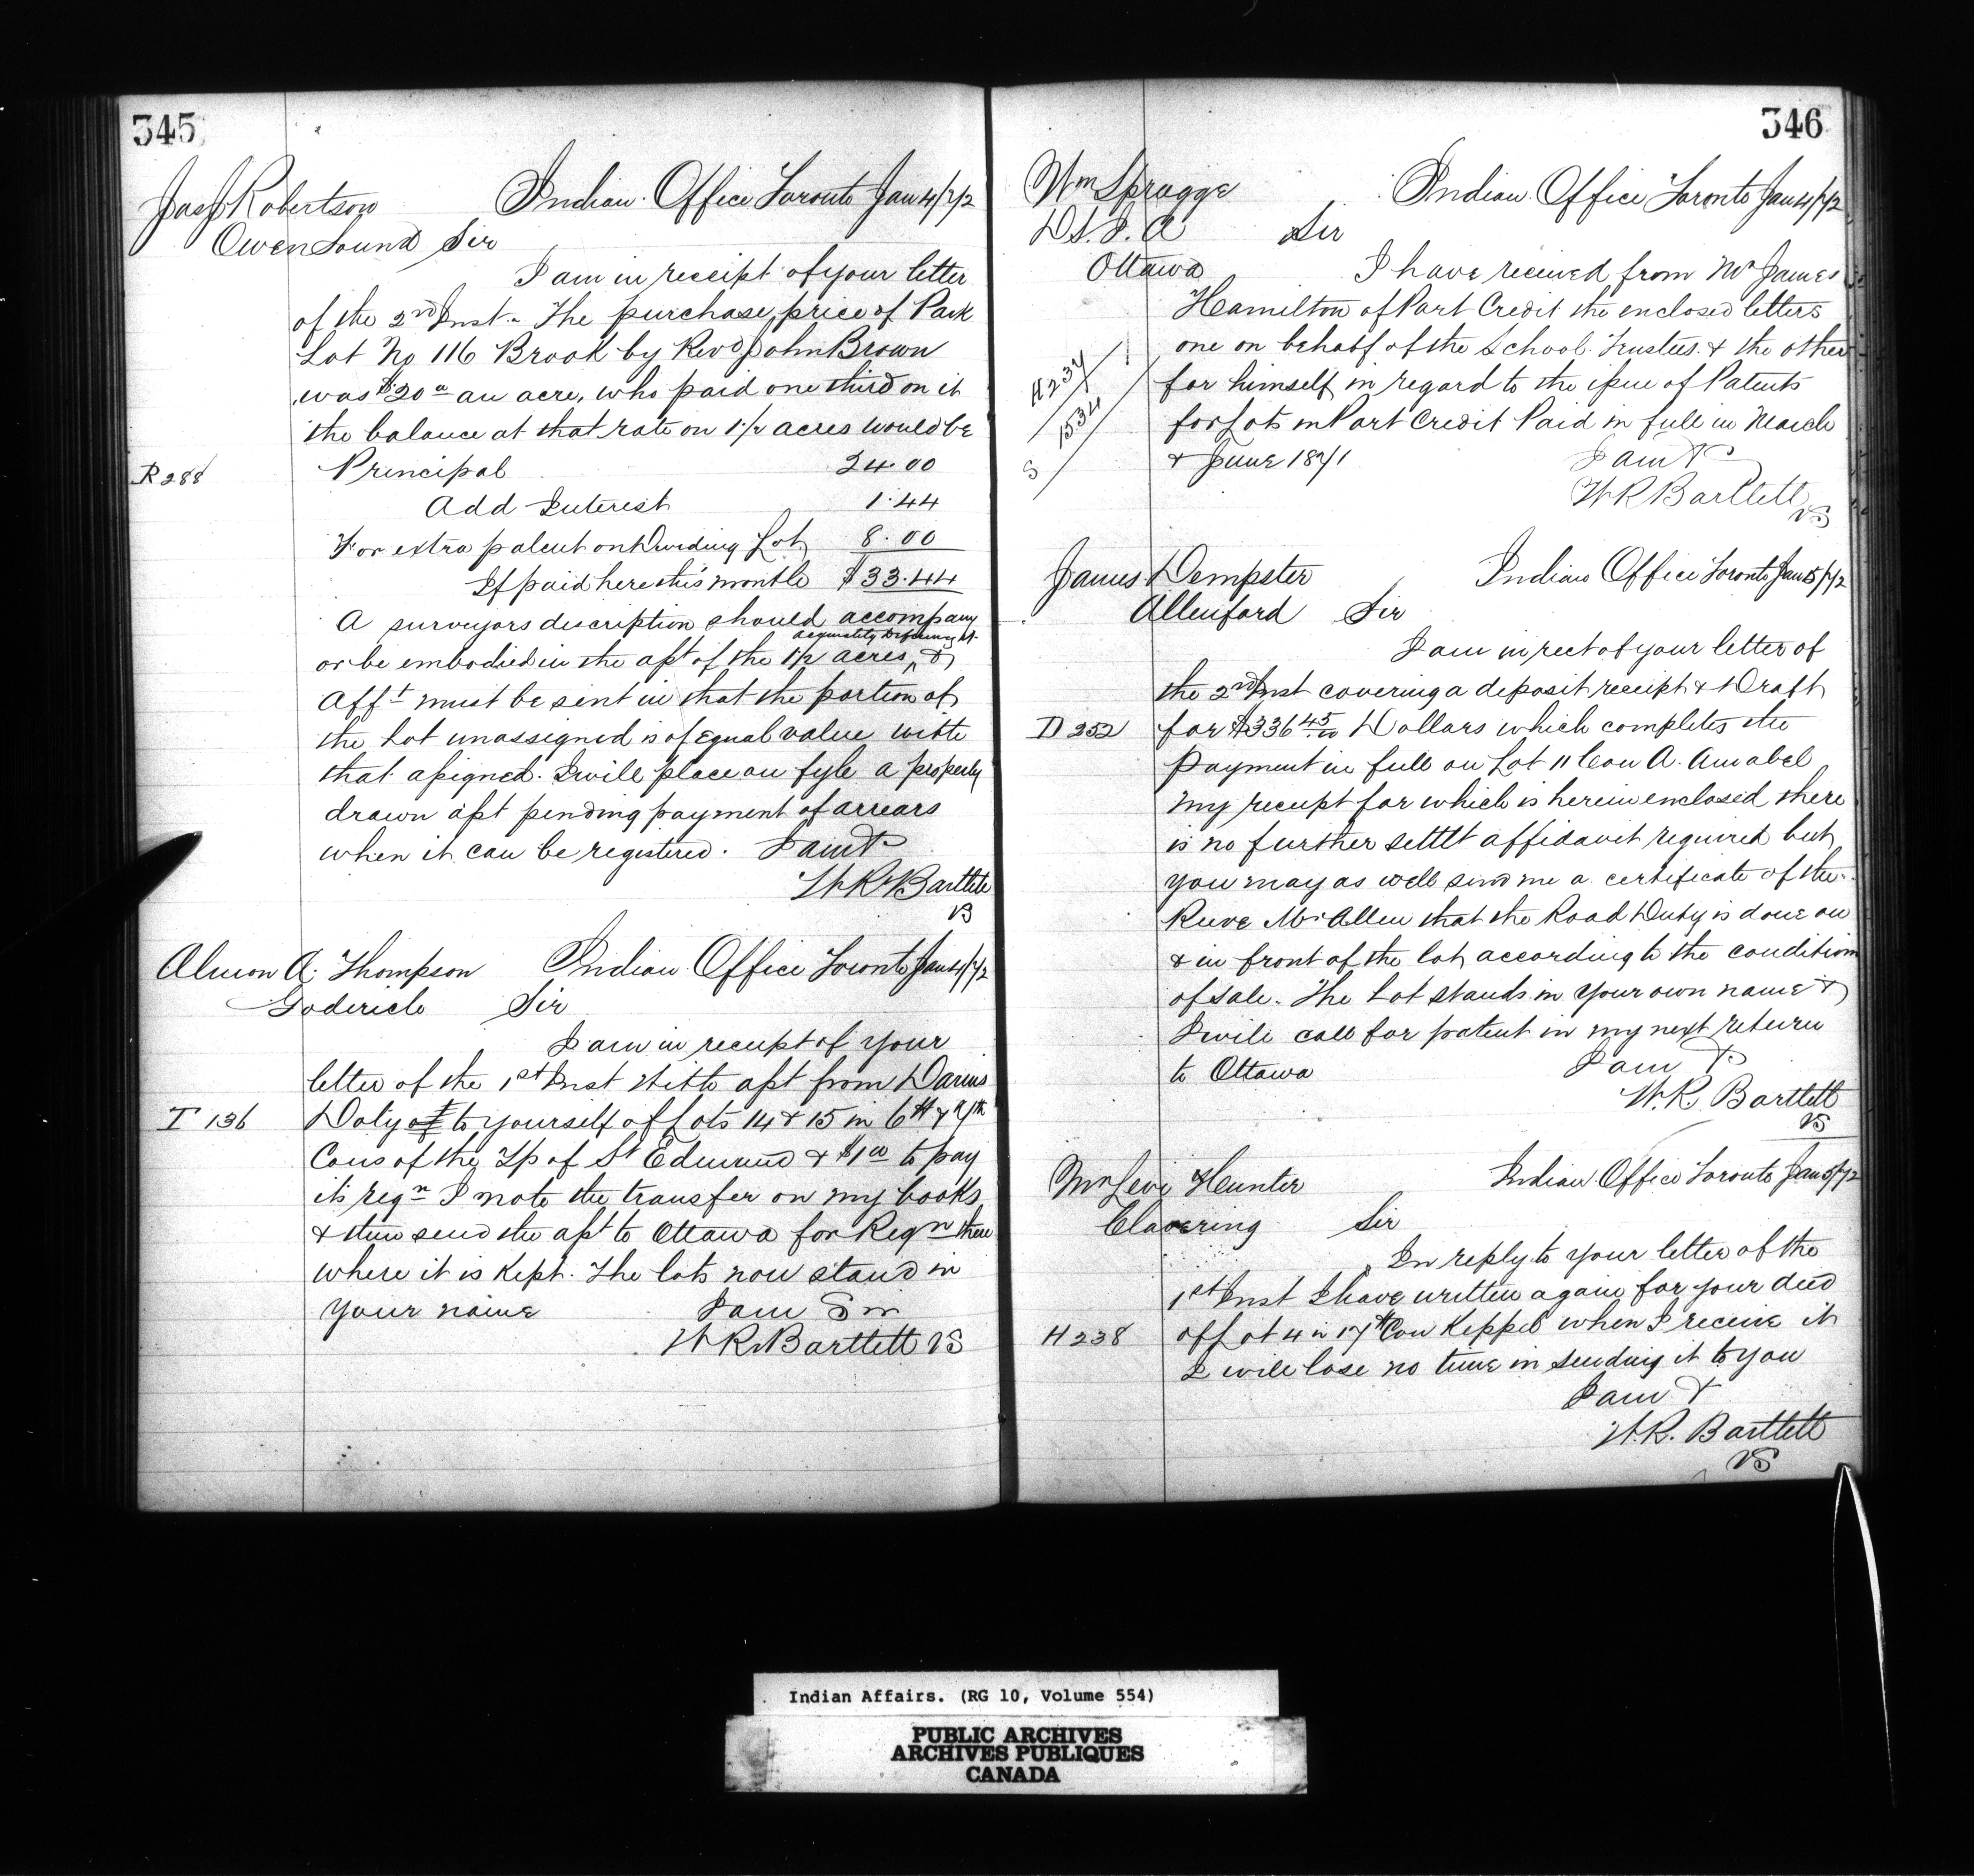 345
Jas J Robertson Indian Office Toronto Jan 4/72
Owen Sound Sir
I am in receipt of your letter
of the 2nd Inst. The purchase price of Park
Lot No 116 Brook by Revd John Brown
was $20 an acre, who paid one third on it
the balance at that rate on 1 1/2 acres would be
R 288 Principal 24.00
Add Interest 1.44
For extra patent on Dividing Lot 8.00
If paid here this month $33.44
A surveyors discription should accompany
acquately Defining it
or be embodied in the asst of the 1 1/2 acres, &
Afft must be sent in that the portion of
the Lot unassigned is of Equal value with
that assigned. I will place on fyle a properly
drawn asst pending payment of arrears
when it can be registered. I am &
W R Bartlett
VS
Almon A. Thompson Indian Office Toronto Jan 4/72
Goderich Sir
I am in receipt of your
letter of the 1st Inst with asst from Darius
T 136 Doty of to yourself of Lots 14 & 15 in 6th & 7th
Cons of the Tp of St Edmund & $1.00 to pay
its regn I note the transfer on my books
& then send the asst to Ottawa for Regn there
where it is Kept. The lots now stand in
your name I am Sir
W R Bartlett VS
346
Wm Spragge Indian Office Toronto Jan 4/72
D S. I. A Sir
Ottawa I have received from Mr James
Hamilton of Port Credit the enclosed letters
one on behalf of the School Trustees & the other
H 234 for himself in regard to the issue of Patents
S 1534 for Lots in Port Credit Paid in full in March
& June 1871 I am &
W R Bartlett
VS
James Dempster Indian Office Toronto Jan 5/72
Allenford Sir
I am in rect of your letter of
the 2nd Inst covering a deposit receipt & Draft
D 252 for $336 45/100 Dollars which completes the
payment in full on Lot 11 Con A. Amabel
my receipt for which is herein enclosed there
is no further settlt affidavit required but
you may as well send me a certificate of the
Reeve Mr Allen that the Road Duty is done on
& in front of the lot according to the condition
of sale. The Lot stands in your own name &
I will call for patent in my next return
to Ottawa I am &
W. R. Bartlett
VS
Mr Levi Hunter Indian Office Toronto Jan 5/72
Clavering Sir
In reply to your letter of the
1st Inst I have written again for your deed
H 238 of Lot 4 in 17th Con Keppel when I receive it
I will lose no time in sending it to you
I am &
W. R. Bartlett
VS
Indian Affairs. (RG 10, Volume 554)
PUBLIC ARCHIVES
ARCHIVES PUBLIQUES
CANADA